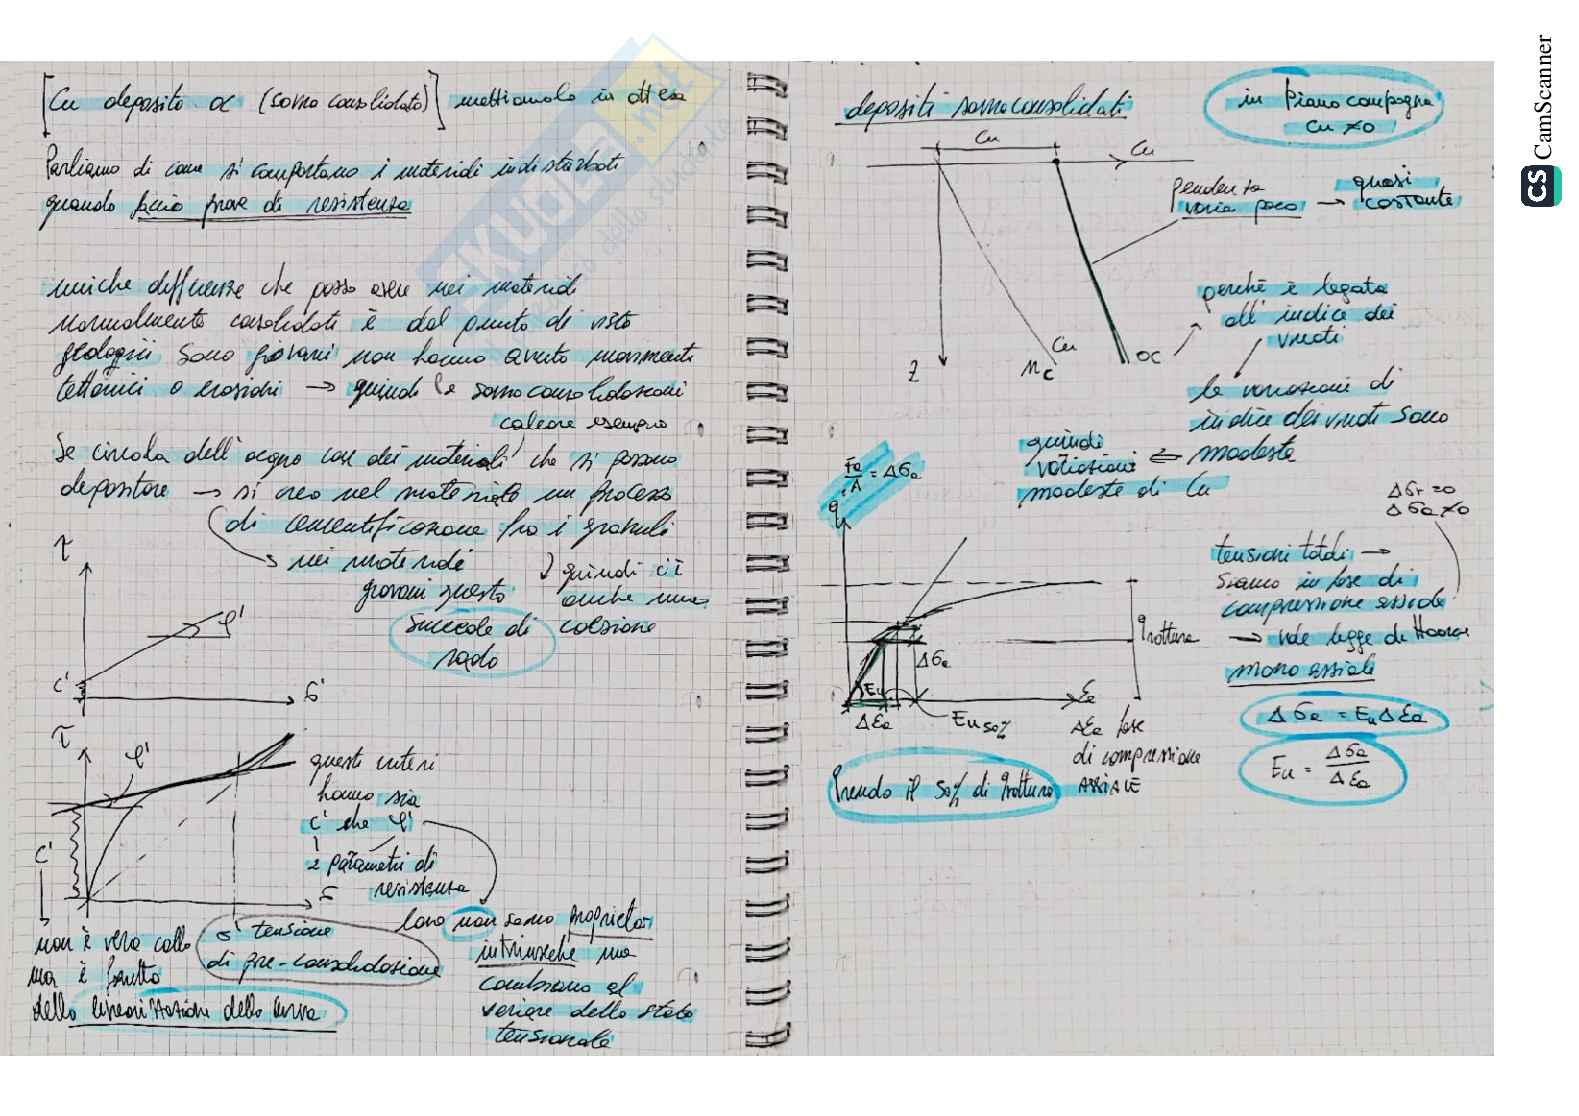 [Cu deposito oc (sovraconsolidato)] mettiamolo in attesa
Parliamo di come si comportano i materiali indisturbati
quando faccio prove di resistenza
uniche differenze che posso avere nei materiali
normalmente consolidati è dal punto di vista
geologici sono giovani non hanno avuto movimenti
tettonici o erosioni → quindi le sovraconsolidazioni
calcare esempio
Se circola dell'acqua con dei materiali che si possono
depositare → si crea nel materiale un processo
di cementificazione fra i granuli
nei materiali
giovani questo
succede di
rado
quindi c'è
anche una
coesione
τ
φ'
c'
σ'
τ
φ'
questi criteri
hanno sia
c' che φ'
2 parametri di
resistenza
c'
σ
loro non sono proprietà
intrinseche ma
cambiano al
variare dello stato
tensionale
σ' tensione
di pre-consolidazione
non è vera
ma è frutto
della linearizzazione della curva
depositi sovraconsolidati
in Piano campagna
cu ≠ 0
Cu
Cu
pendenza
varia poco → quasi
costante
perché è legata
all'indice dei
vuoti
z
Cu
NC
OC
le variazioni di
indice dei vuoti sono
modeste
quindi
variazioni ⇐
modeste di Cu
Fa/A = Δσa
q
Δσr = 0
Δσa ≠ 0
tensioni totali →
siamo in fase di
compressione assiale
→ vale legge di Hooke
mono assiale
q rottura
Δσa
Eu
Δεa
Eu 50%
εa
Δεa fase
di compressione
ASSIALE
Δσa = Eu Δεa
Eu = Δσa/Δεa
Prendo il 50% di qrottura
SKUOLA.net
CS CamScanner